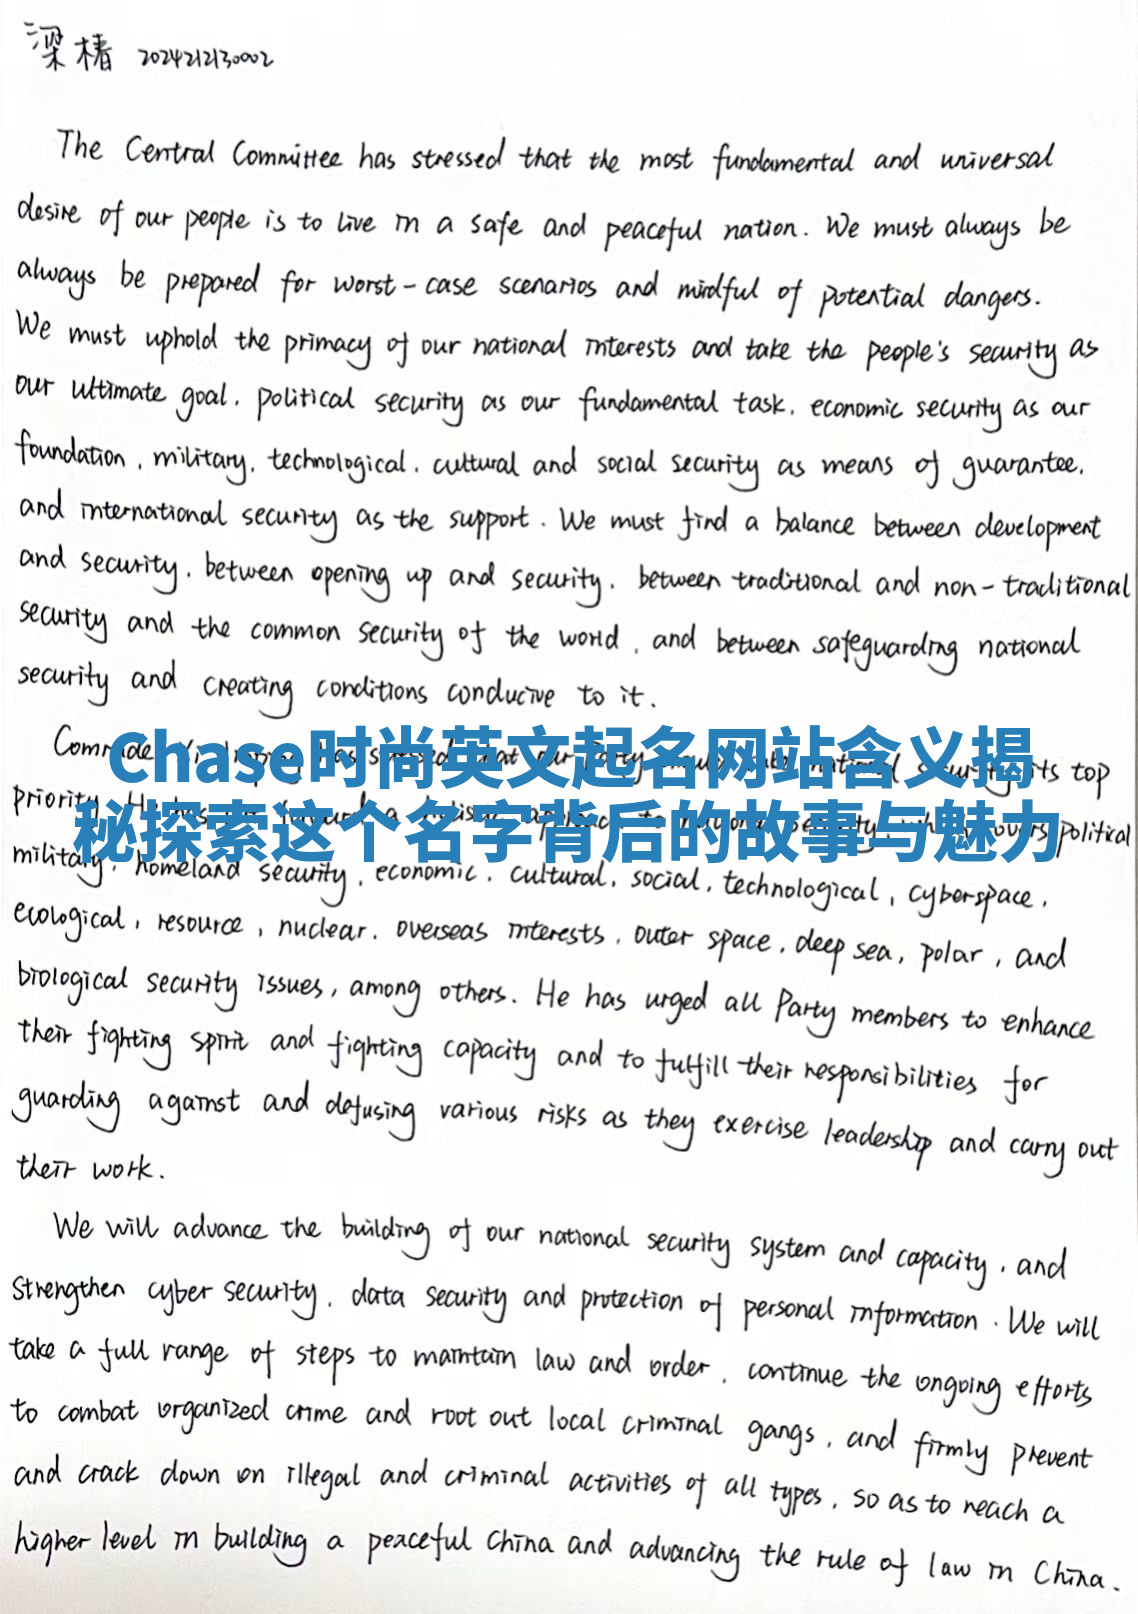 梁椿 2024212130002
The Central Committee has stressed that the most fundamental and universal
desire of our people is to live in a safe and peaceful nation. We must always be
always be prepared for worst-case scenarios and mindful of potential dangers.
We must uphold the primacy of our national interests and take the people's security as
our ultimate goal, political security as our fundamental task, economic security as our
foundation, military, technological, cultural and social security as means of guarantee,
and international security as the support. We must find a balance between development
and security, between opening up and security, between traditional and non-traditional
security and the common security of the world, and between safeguarding national
security and creating conditions conducive to it.
Comrade has stressed that our Party top
Chase时尚英文起名网站含义揭
priority. political
秘探索这个名字背后的故事与魅力
military, homeland security, economic, cultural, social, technological, cyberspace,
ecological, resource, nuclear, overseas interests, outer space, deep sea, polar, and
biological security issues, among others. He has urged all Party members to enhance
their fighting spirit and fighting capacity and to fulfill their responsibilities for
guarding against and defusing various risks as they exercise leadership and carry out
their work.
We will advance the building of our national security system and capacity, and
strengthen cyber security, data security and protection of personal information. We will
take a full range of steps to maintain law and order, continue the ongoing efforts
to combat organized crime and root out local criminal gangs, and firmly prevent
and crack down on illegal and criminal activities of all types, so as to reach a
higher level in building a peaceful China and advancing the rule of law in China.